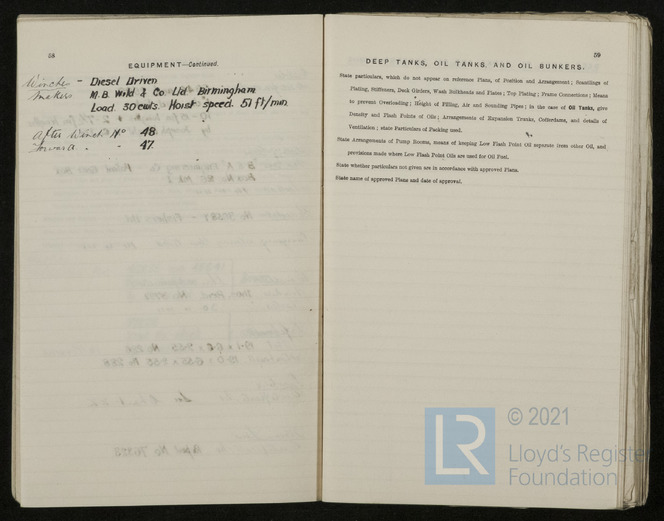 58
EQUIPMENT—Continued.
Winches - Diesel Driven
Makers M.B. Wild & Co Ltd Birmingham
Load. 30 cwts. Hoist speed. 51 ft/min.
After Winch No 48.
Forward . . 47.
59
DEEP TANKS, OIL TANKS, AND OIL BUNKERS.
State particulars, which do not appear on reference Plans, of Position and Arrangement; Scantlings of
Plating, Stiffeners, Deck Girders, Wash Bulkheads and Plates; Top Plating; Frame Connections; Means
to prevent Overloading; Height of Filling, Air and Sounding Pipes; in the case of OIL TANKS, give
Density and Flash Points of Oils; Arrangements of Expansion Trunks, Cofferdams, and details of
Ventilation; state Particulars of Packing used.
State Arrangements of Pump Rooms, means of keeping Low Flash Point Oil separate from other Oil, and
provisions made where Low Flash Point Oils are used for Oil Fuel.
State whether particulars not given are in accordance with approved Plans.
State name of approved Plans and date of approval.
LR
© 2021
Lloyd's Register
Foundation